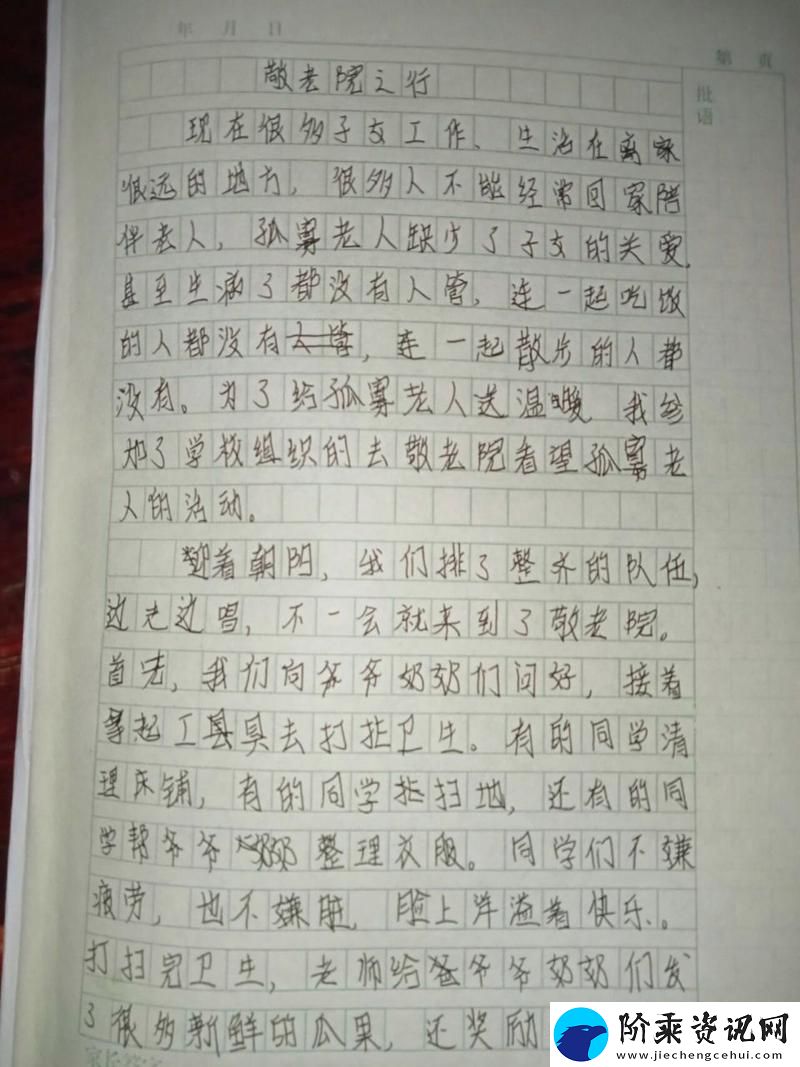 年 月 日
第 页
批语
敬老院之行
现在很多子女工作、生活在离家
很远的地方，很多人不能经常回家陪
伴老人，孤寡老人缺少了子女的关爱，
甚至生病了都没有人管，连一起吃饭
的人都没有人管，连一起散步的人都
没有。为了给孤寡老人送温暖 我参
加了学校组织的去敬老院看望孤寡老
人的活动。
迎着朝阳，我们排了整齐的队伍，
边走边唱，不一会就来到了敬老院。
首先，我们向爷爷奶奶们问好，接着
拿起工具具去打扫卫生。有的同学清
理床铺，有的同学扫地，还有的同
学帮爷爷奶奶整理衣服。同学们不嫌
疲劳，也不嫌脏，脸上洋溢着快乐。
打扫完卫生，老师给爷爷奶奶们发
了很多新鲜的瓜果，还奖励
家长签字
阶乘资讯网
www.jiechengcehui.com